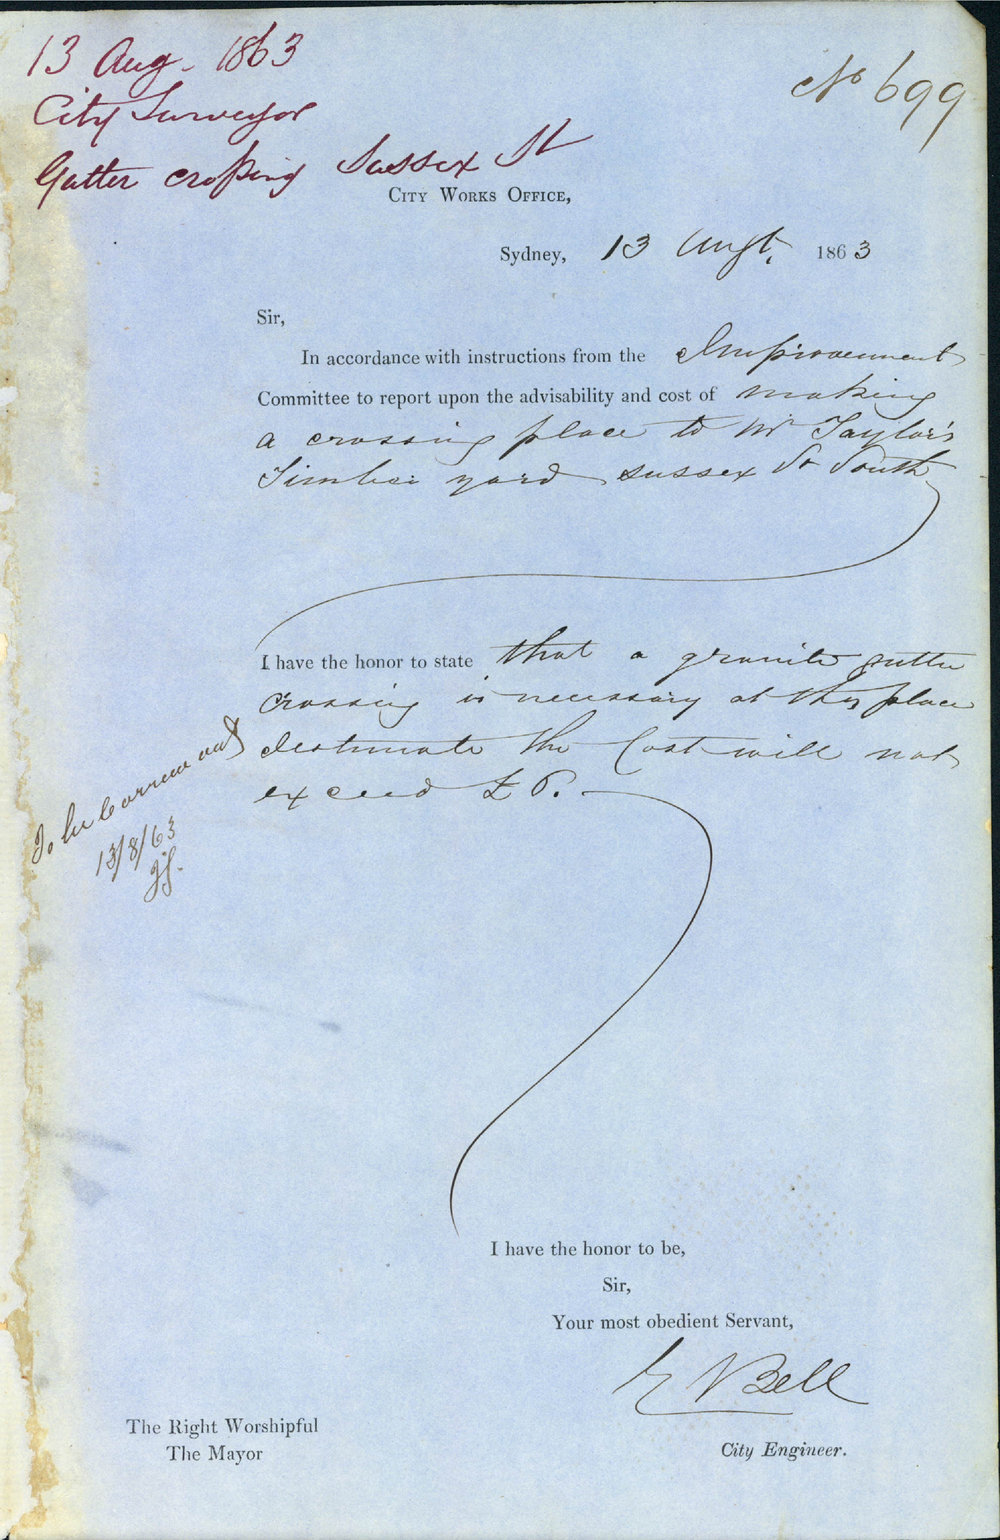 13 Aug. 1863
City Surveyor
Gutter crossing Sussex St
No 699
CITY WORKS OFFICE,
Sydney, 13 Augt. 1863
Sir,
In accordance with instructions from the Improvement
Committee to report upon the advisability and cost of making
a crossing place to Mr Taylor's
Timber yard Sussex St South
I have the honor to state that a granite gutter
crossing is necessary at this place
I estimate the Cost will not
exceed £
To be Carried out
13/8/63
I have the honor to be,
Sir,
Your most obedient Servant,
E Bell
The Right Worshipful
The Mayor
City Engineer.